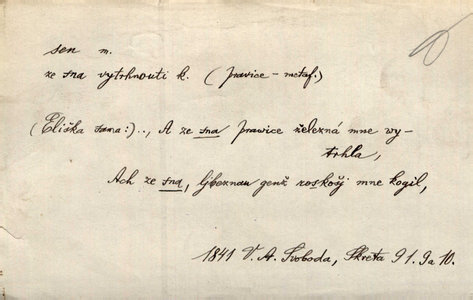 sen m.
ze sna vytrhnouti k. (pravice – metaf.)
(Eliška sama:).., A ze sna prawice železná mne wy-
trhla,
Ach ze sna, genž roskošj mne kogil,
1841 V. A. Svoboda, Škreta 91. 9a 10.